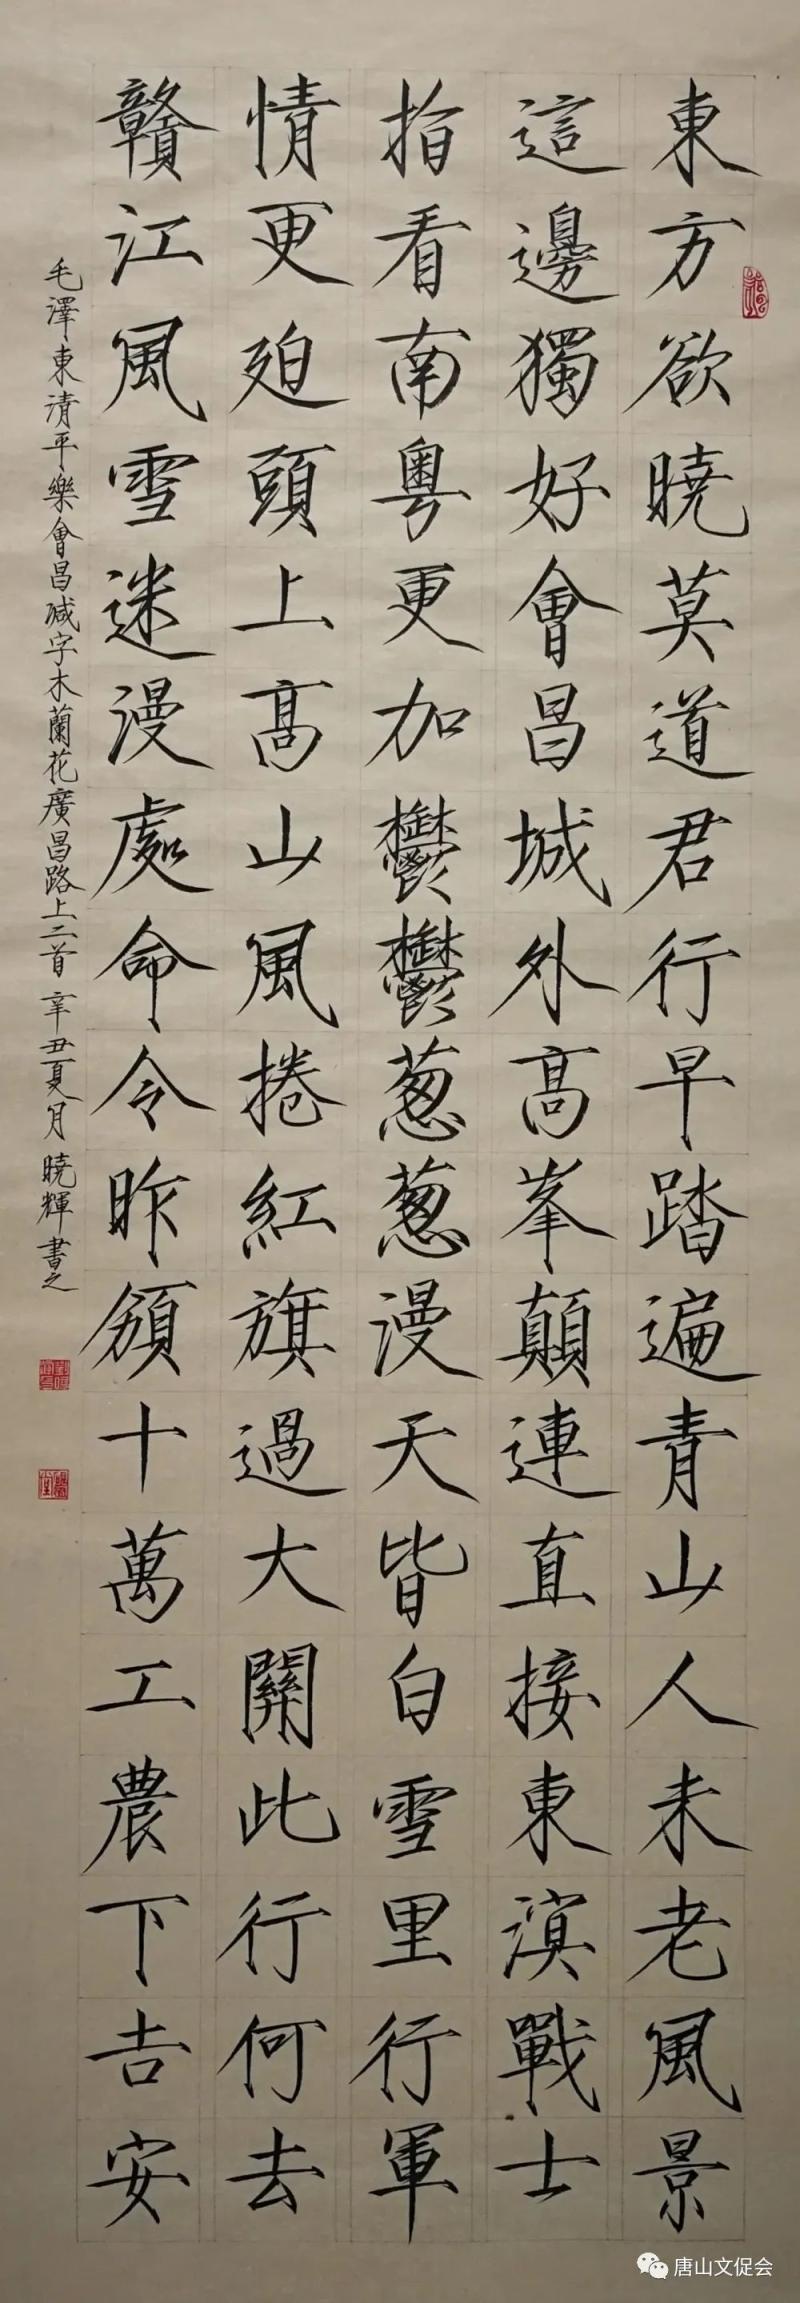 東方欲曉莫道君行早踏遍青山人未老風景
這邊獨好會昌城外高峯顛連直接東溟戰士
指看南粵更加鬱鬱葱葱漫天皆白雪里行軍
情更迫頭上高山風捲紅旗過大關此行何去
贛江風雪迷漫處命令昨頒十萬工農下吉安
毛澤東清平樂會昌減字木蘭花廣昌路上二首 辛丑夏月 曉輝書之
唐山文促会